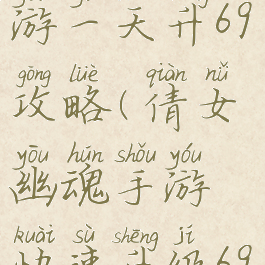 游一天升69
gōng lüè qiàn nǚ
攻略(倩女
yōu hún shǒu yóu
幽魂手游
kuài sù shēng jí
快速升级69